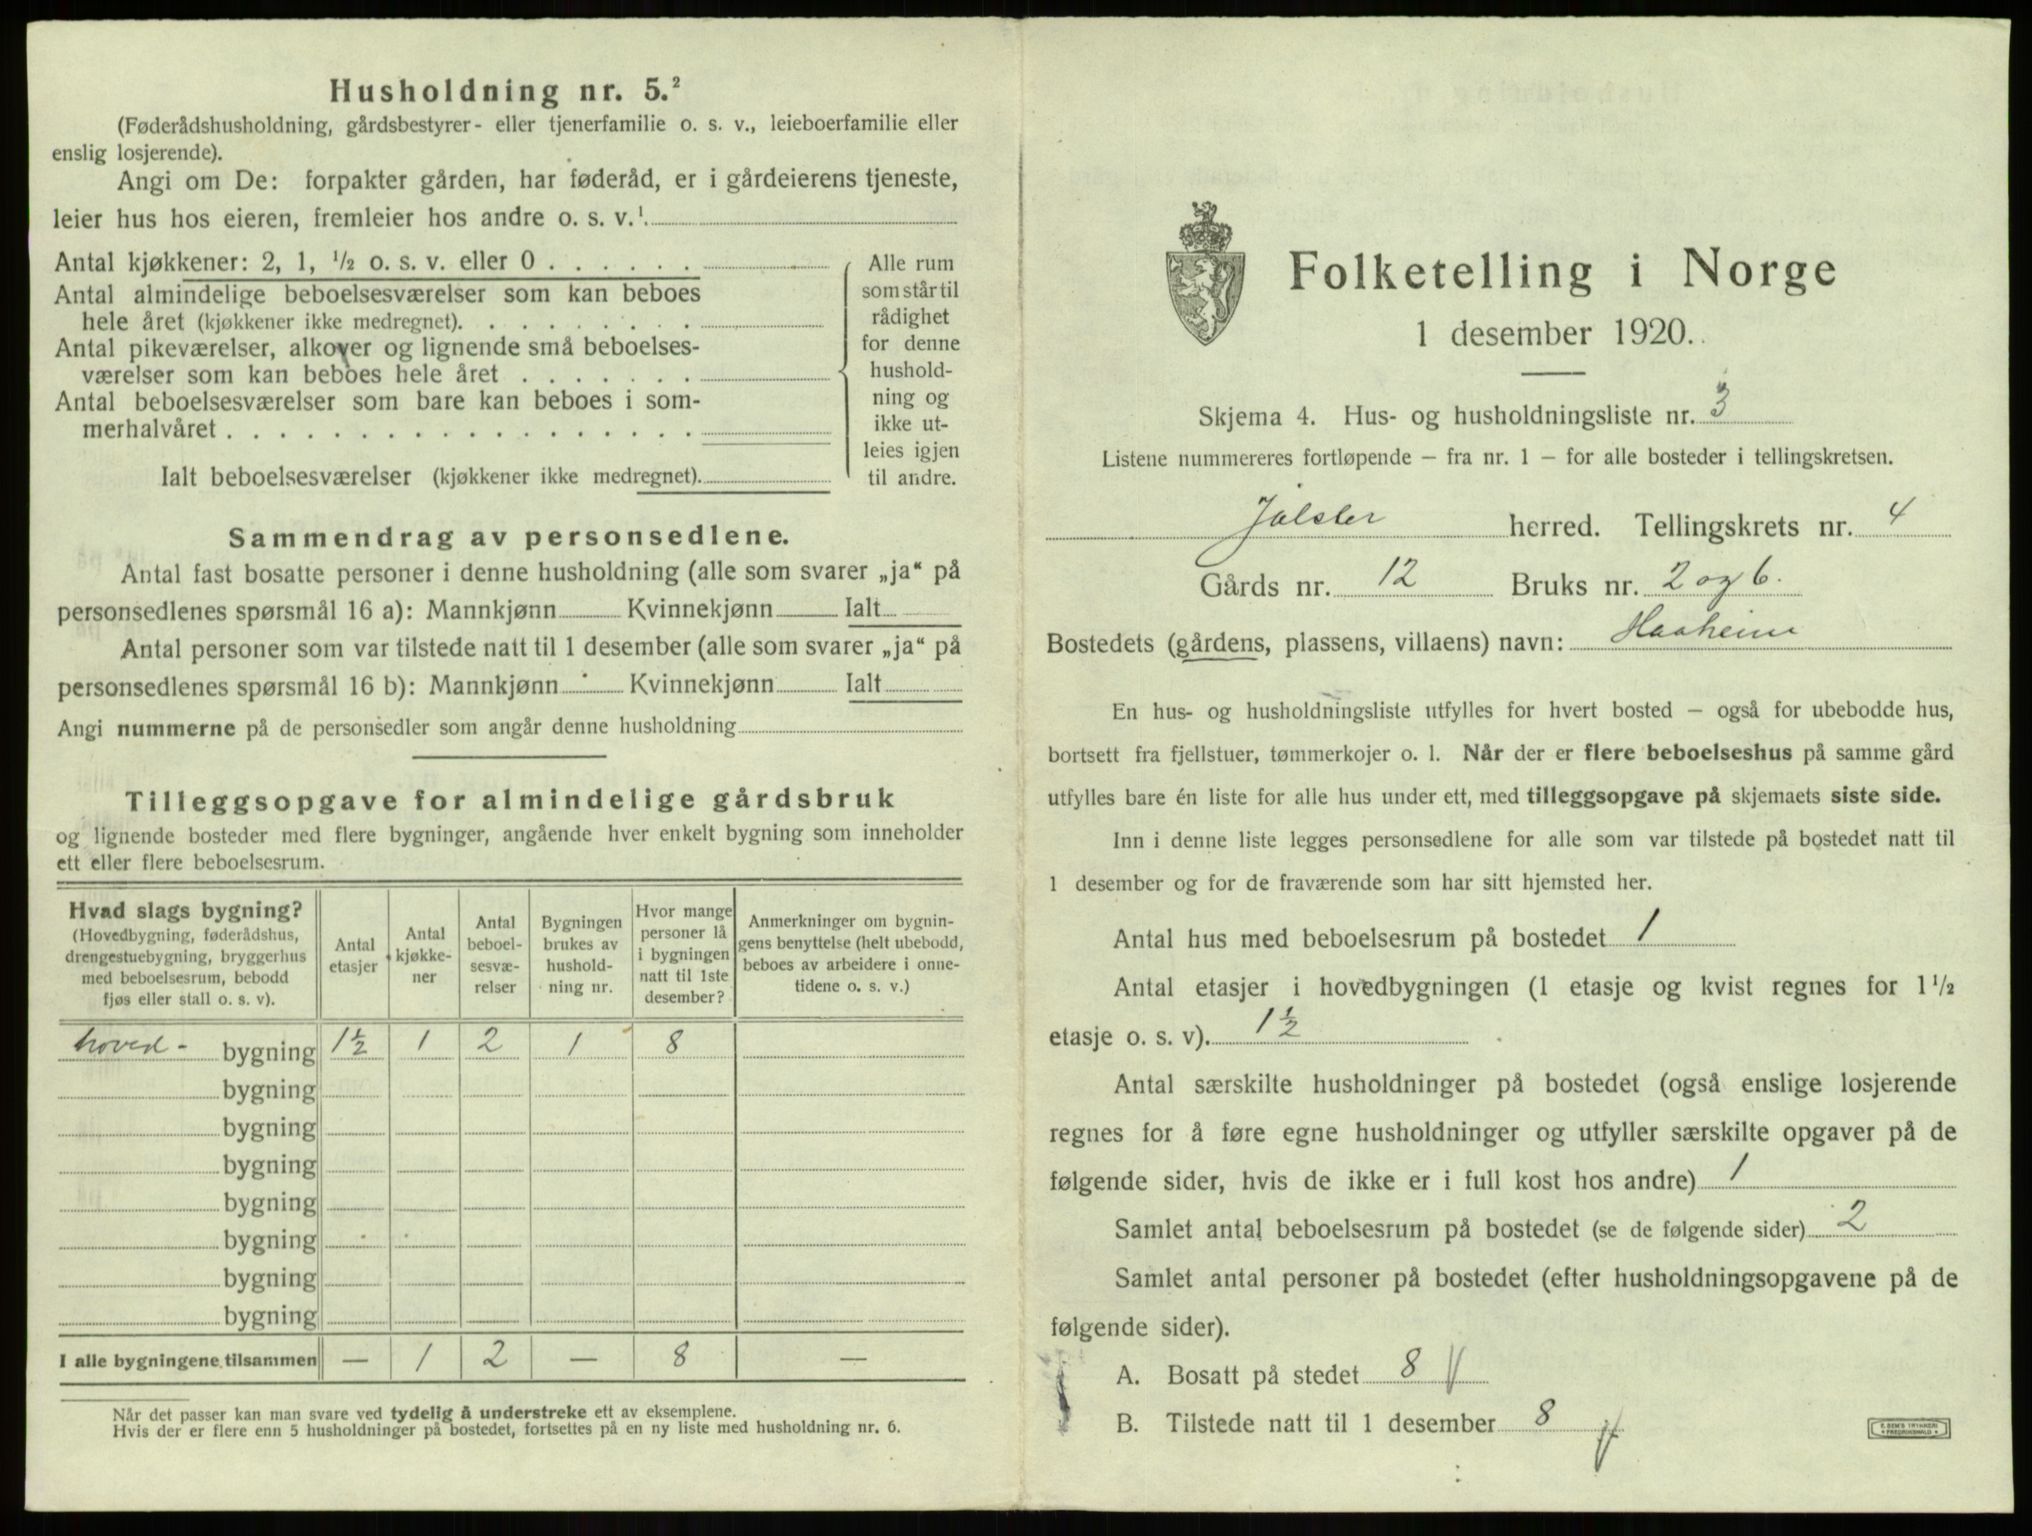 Husholdning nr. 5.²
(Føderådshusholdning, gårdsbestyrer- eller tjenerfamilie o. s. v., leieboerfamilie eller
enslig losjerende).
Angi om De: forpakter gården, har føderåd, er i gårdeierens tjeneste,
leier hus hos eieren, fremleier hos andre o. s. v.¹
Antal kjøkkener: 2, 1, ½ o. s. v. eller 0 . . . . . .
Antal almindelige beboelsesværelser som kan beboes
hele året (kjøkkener ikke medregnet). . . . . . . . .
Antal pikeværelser, alkover og lignende små beboelses-
værelser som kan beboes hele året . . . . . . .
Antal beboelsesværelser som bare kan beboes i som-
merhalvåret . . . . . . . . . . . . . . . . . .
Ialt beboelsesværelser (kjøkkener ikke medregnet).
Alle rum
som står til
rådighet
for denne
hushold-
ning og
ikke ut-
leies igjen
til andre.
Sammendrag av personsedlene.
Antal fast bosatte personer i denne husholdning (alle som svarer „ja“ på
personsedlenes spørsmål 16 a): Mannkjønn Kvinnekjønn Ialt
Antal personer som var tilstede natt til 1 desember (alle som svarer „ja“ på
personsedlenes spørsmål 16 b): Mannkjønn Kvinnekjønn Ialt
Angi nummerne på de personsedler som angår denne husholdning
Tilleggsopgave for almindelige gårdsbruk
og lignende bosteder med flere bygninger, angående hver enkelt bygning som inneholder
ett eller flere beboelsesrum.
Hvad slags bygning?
(Hovedbygning, føderådshus,
drengestuebygning, bryggerhus
med beboelsesrum, bebodd
fjøs eller stall o. s. v).
Antal
etasjer
Antal
kjøkke-
ner
Antal
beboel-
sesvæ-
relser
Bygningen
brukes av
hushold-
ning nr.
Hvor mange
personer lå
i bygningen
natt til 1ste
desember?
Anmerkninger om bygnin-
gens benyttelse (helt ubebodd,
beboes av arbeidere i onne-
tidene o. s. v.)
hoved- bygning 1½ 1 2 1 8
bygning
bygning
bygning
bygning
bygning
bygning
bygning
I alle bygningene tilsammen — 1 2 — 8 —
Når det passer kan man svare ved tydelig å understreke ett av eksemplene.
Hvis der er flere enn 5 husholdninger på bostedet, fortsettes på en ny liste med husholdning nr. 6.
Folketelling i Norge
1 desember 1920.
Skjema 4. Hus- og husholdningsliste nr. 3
Listene nummereres fortløpende — fra nr. 1 — for alle bosteder i tellingskretsen.
Jølster herred. Tellingskrets nr. 4
Gårds nr. 12 Bruks nr. 2 og 6.
Bostedets (gårdens, plassens, villaens) navn: Haaheim
En hus- og husholdningsliste utfylles for hvert bosted — også for ubebodde hus,
bortsett fra fjellstuer, tømmerkojer o. l. Når der er flere beboelseshus på samme gård
utfylles bare én liste for alle hus under ett, med tilleggsopgave på skjemaets siste side.
Inn i denne liste legges personsedlene for alle som var tilstede på bostedet natt til
1 desember og for de fraværende som har sitt hjemsted her.
Antal hus med beboelsesrum på bostedet 1
Antal etasjer i hovedbygningen (1 etasje og kvist regnes for 1½
etasje o. s. v). 1½
Antal særskilte husholdninger på bostedet (også enslige losjerende
regnes for å føre egne husholdninger og utfyller særskilte opgaver på de
følgende sider, hvis de ikke er i full kost hos andre) 1
Samlet antal beboelsesrum på bostedet (se de følgende sider) 2
Samlet antal personer på bostedet (efter husholdningsopgavene på de
følgende sider).
A. Bosatt på stedet 8
B. Tilstede natt til 1 desember 8